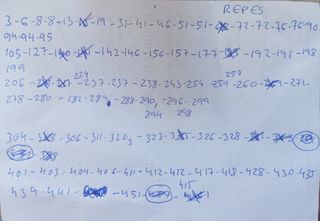 REPES
3-6-8-8-13-19-31-41-46-51-51-72-72-76-76-90
94-94-95
105-127-142-146-156-157-177-192-195-198
199
224 257
206-237-237-238-243-254-259-260-271-
278-280-282-284-288-290-296-299
294 298
304-306-311-320-323-326-328
401-403-404-406-411-412-412-417-418-428-430-435
415
439-441-451